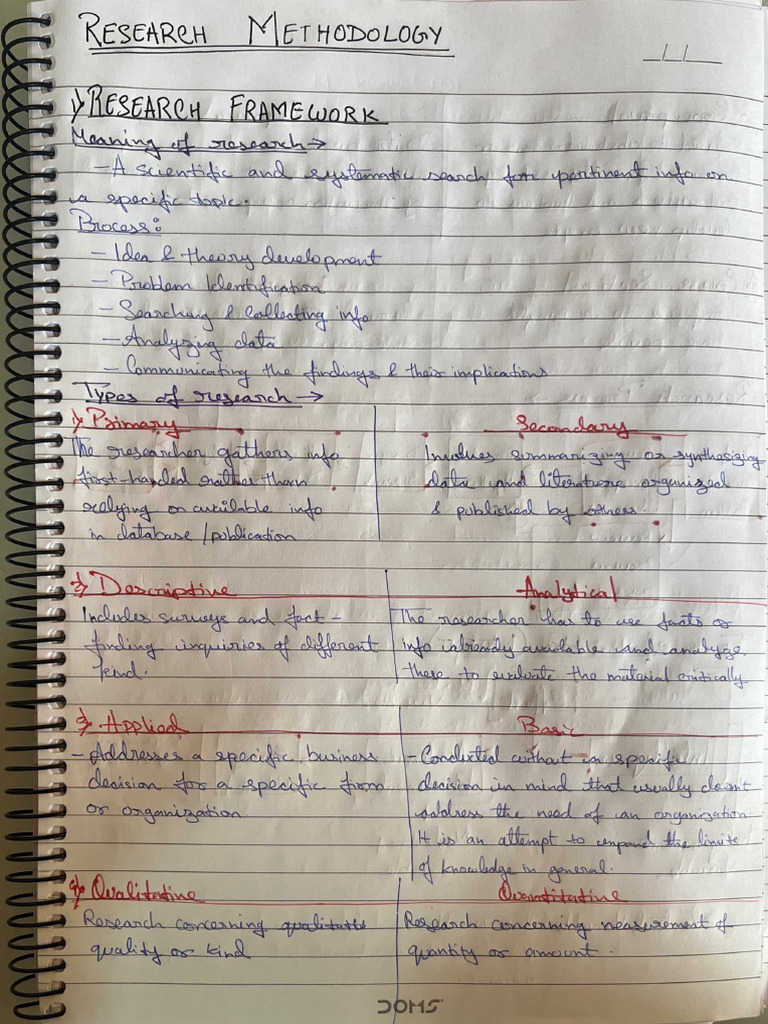 RESEARCH METHODOLOGY
_/_/__
1) RESEARCH FRAMEWORK
Meaning of research →
- A scientific and systematic search for pertinent info on
a specific topic.
Process:
- Idea & theory development
- Problem Identification
- Searching & Collecting info
- Analyzing data
- Communicating the findings & their implications
Types of research →
1) Primary
The researcher gathers info
first-handed rather than
relying on available info
in database/publication
Secondary
Involves summarizing or synthesizing
data and literature organized
& published by others.
2) Descriptive
Includes surveys and fact-
finding inquiries of different
kind.
Analytical
The researcher has to use facts or
info already available and analyze
these to evaluate the material critically
3) Applied
- Addresses a specific business
decision for a specific firm
or organization.
Basic
- Conducted without a specific
decision in mind that usually doesn't
address the need of an organization.
It is an attempt to expand the limits
of knowledge in general.
4) Qualitative
Research concerning qualitative
quality or kind
Quantitative
Research concerning measurement of
quantity or amount.
DOMS